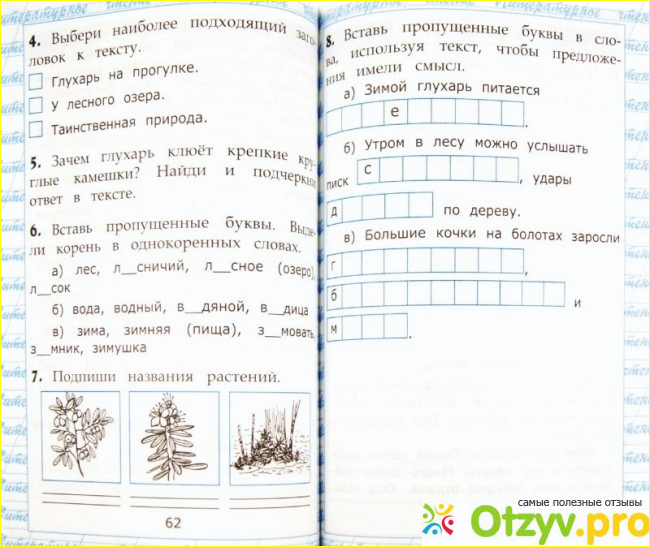 4. Выбери наиболее подходящий заго-
ловок к тексту.
Глухарь на прогулке.
У лесного озера.
Таинственная природа.
5. Зачем глухарь клюёт крепкие кру-
глые камешки? Найди и подчеркни
ответ в тексте.
6. Вставь пропущенные буквы. Выде-
ли корень в однокоренных словах.
а) лес, л__сничий, л__сное (озеро),
л__сок
б) вода, водный, в__дяной, в__дица
в) зима, зимняя (пища), з__мовать,
з__мник, зимушка
7. Подпиши названия растений.
62
8. Вставь пропущенные буквы в сло-
ва, используя текст, чтобы предложе-
ния имели смысл.
а) Зимой глухарь питается
е .
б) Утром в лесу можно услышать
писк с , удары
д по дереву.
в) Большие кочки на болотах заросли
г ,
б и
м .
самые полезные отзывы
Otzyv.pro